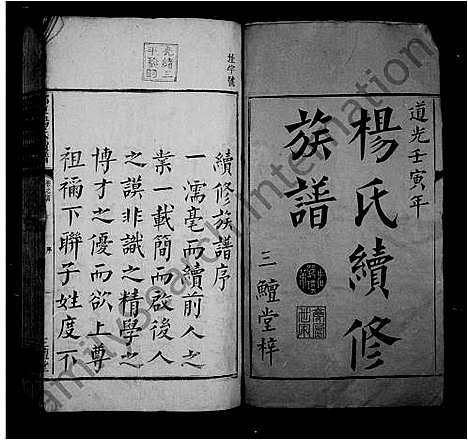 道光壬寅年
楊氏續修
族譜
三鱣堂梓
址字號
續修族譜序
一濡毫而續前人之
業一載簡而啟後人
之謨非識之精學之
博才之優而欲上尊
祖禰下聯子姓度不